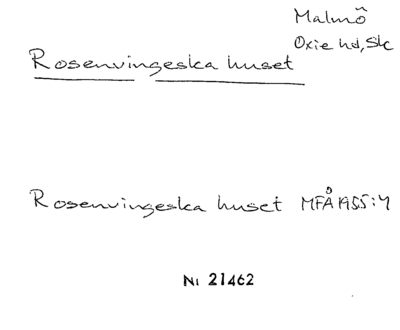 Malmö
Oxie hd, Sk
Rosenvingeska huset
Rosenvingeska huset MFÅ 1955:4
Nı 21462